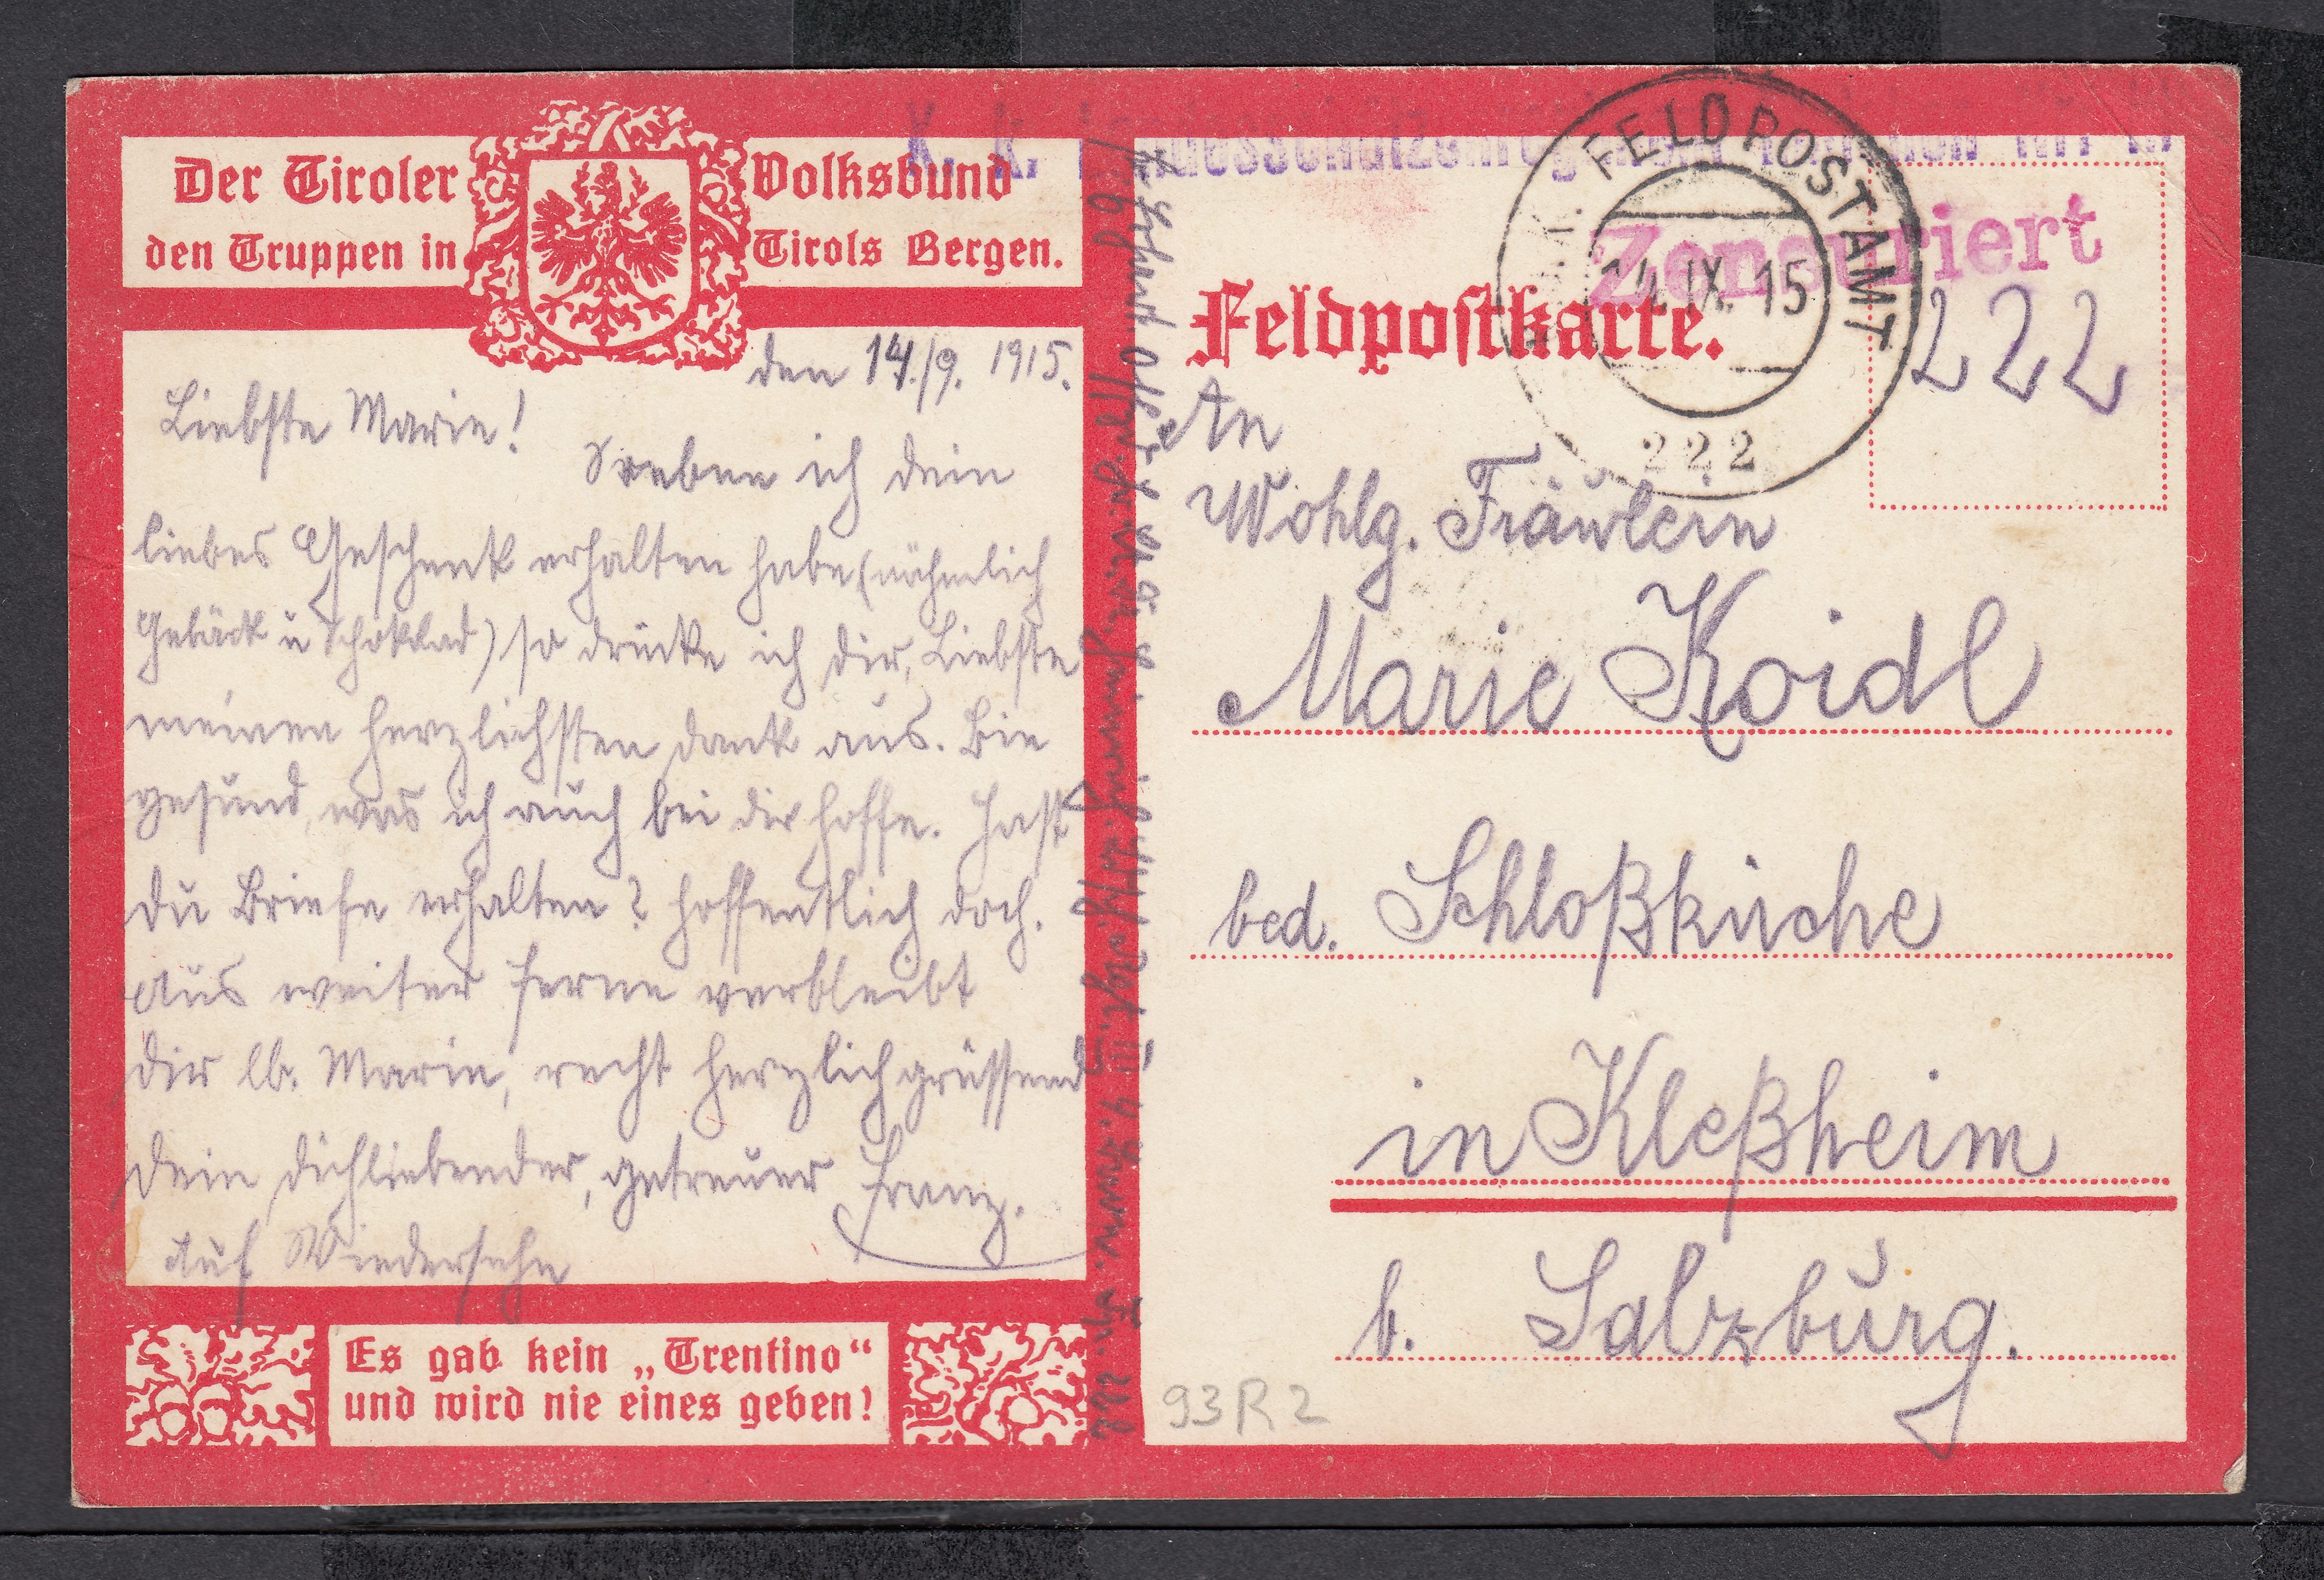 Der Tiroler Volksbund
den Truppen in Tirols Bergen.
den 14./9. 1915.
Liebste Marie!
Soeben ich dein
liebes Geschenk erhalten habe (nähmlich
Gebäck u Schokolad) so drücke ich dir, Liebste
meinen herzlichsten Dank aus. Bin
gesund, was ich auch bei dir hoffe. Hast
du Briefe erhalten? hoffentlich doch.
Aus weiter Ferne verbleibt
dir lb. Marie, recht herzlich grüssend
dein dichliebender, getreuer Franz.
Auf Wiedersehn
Es gab kein „Trentino“
und wird nie eines geben!
K. K. Landesschützenregiment
FELDPOSTAMT
14. IX. 15
222
Zensuriert
222
Feldpostkarte.
An
Wohlg. Fräulein
Marie Koidl
bed. Schloßküche
in Kleßheim
b. Salzburg.
93R2